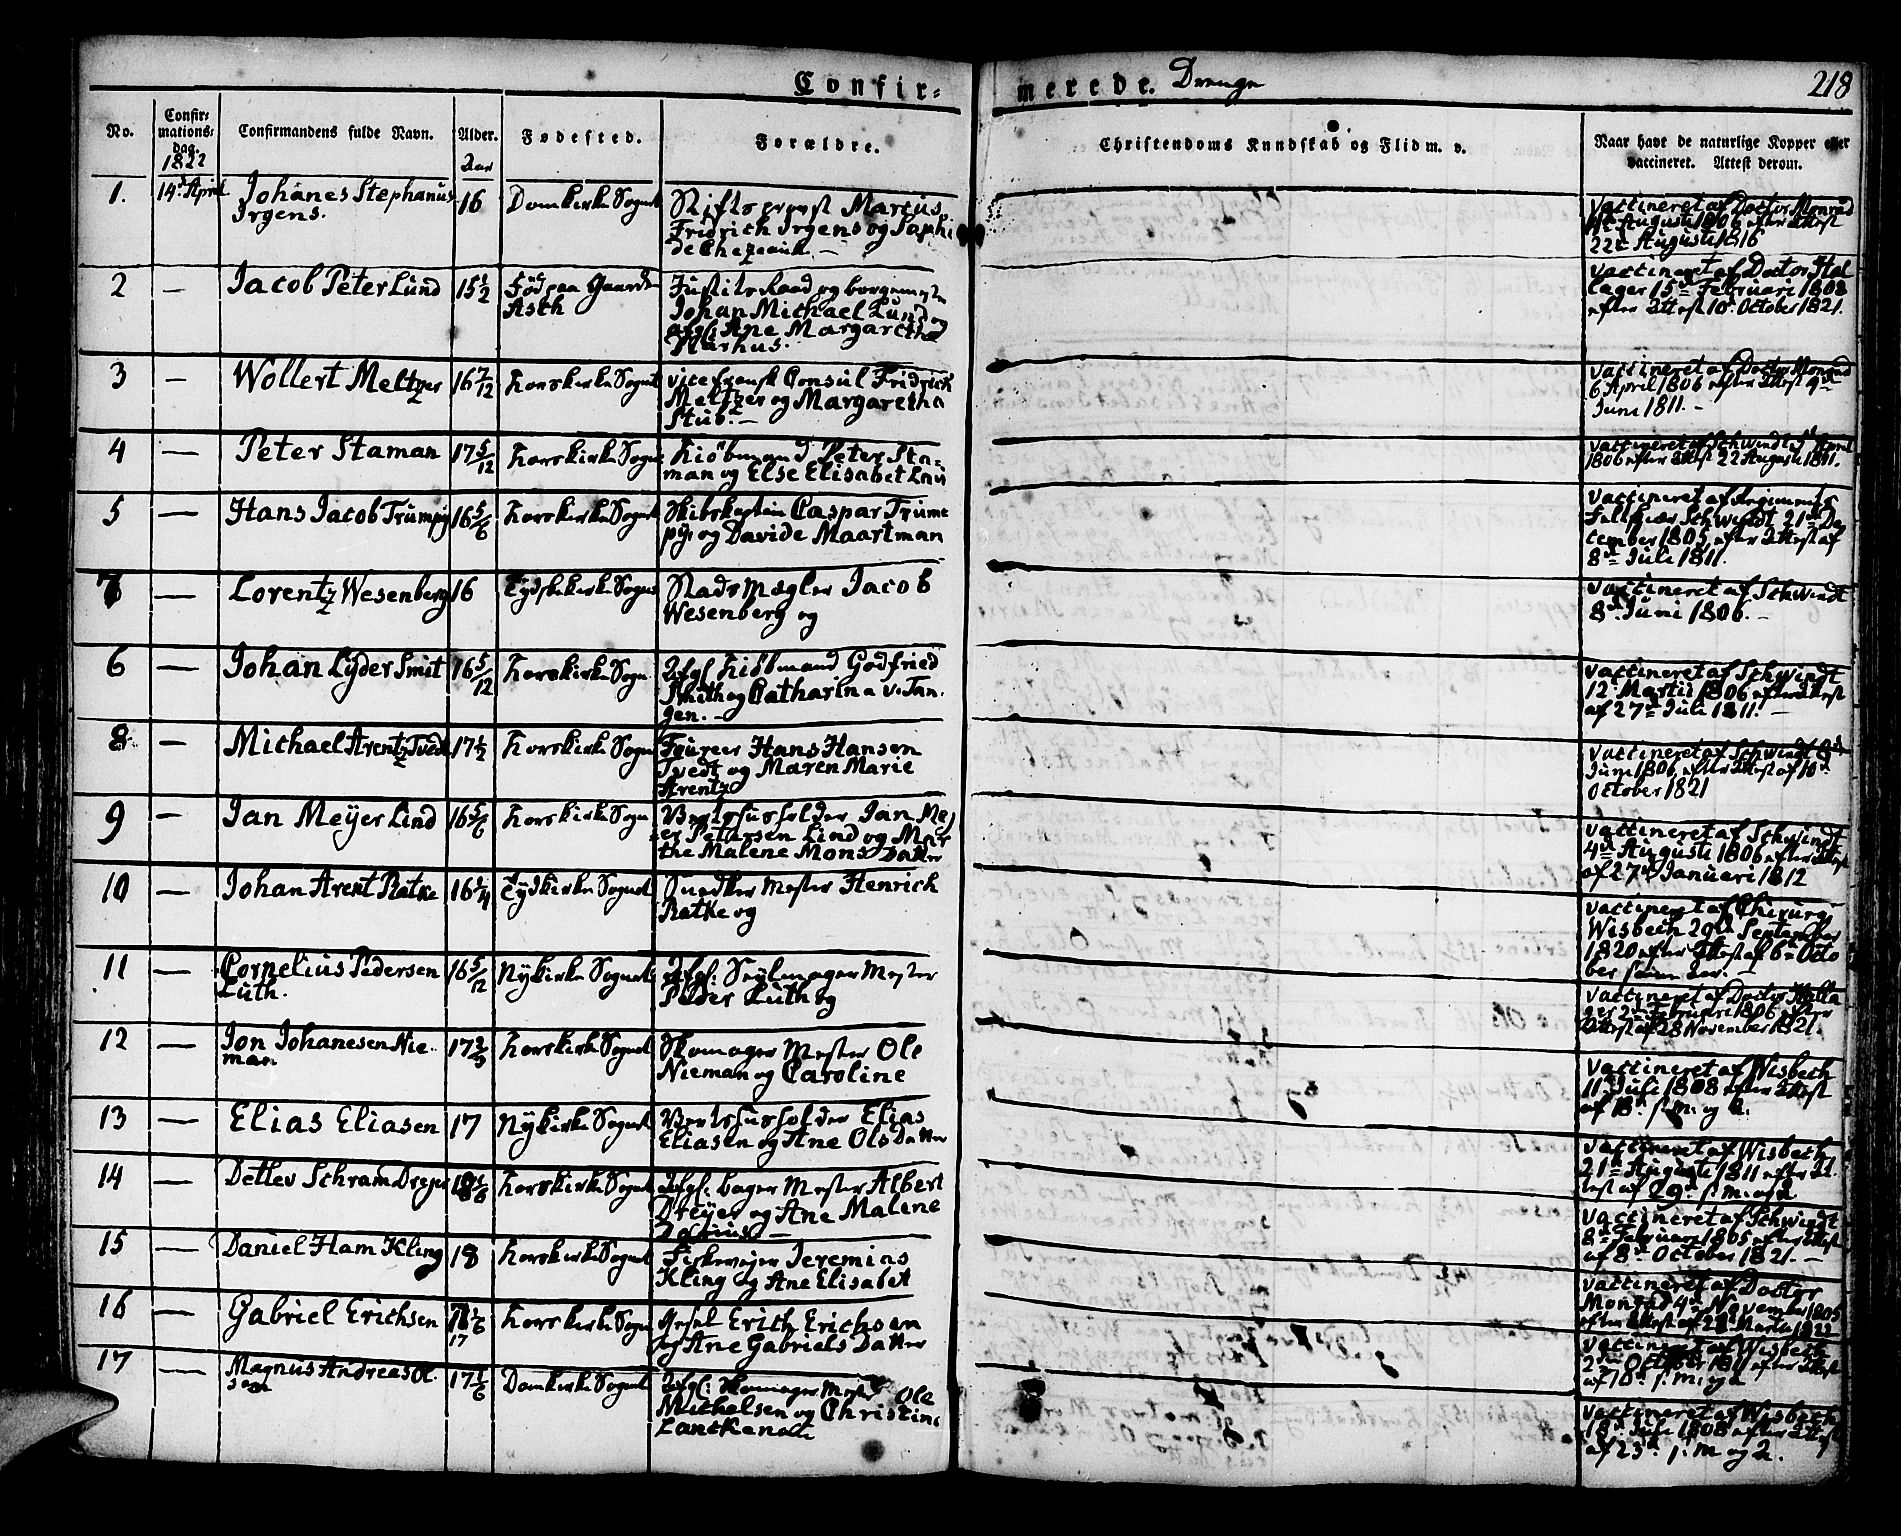 Confir-
merede. Drenge
218
No.
Confir-
mations-
dag.
1822
Confirmandens fulde Navn.
Alder.
Aar
Fødested.
Forældre.
Christendoms Kundskab og Flid m. v.
Naar havt de naturlige Kopper eller
vaccineret. Attest derom.
1. 14d April Johánes Stephanus 16 Domkirke Sogn Stiftsprovst Marcus
Irgens. Fridrich Irgens og Sophi
de Chezeaux. -
vaccineret af Doctor Monrad
Augusti 1806 efter Attest
22d Augusti 1816
2 - Jacob Peter Lund 15 1/2 Fød paa Gaarden Justits Raad og borgemester
Asth Johan Michael Lund og
afgl: Ane Margaretha
Aarhus.
vaccineret af Doctor Stal
lager 15d Februari 1808
efter Attest 10d October 1821.
3 - Wollert Meltzer 16 7/12 Korskirke Sogn vice fransk Consul Fridrich
Meltzer og Margaretha
Stub. -
vaccineret af Doctor Monrad
6 April 1806 efter Attest 9d
Juni 1811. -
4 - Peter Staman 17 5/12 Korskirke Sogn Kiöbmand Peter Sta-
man og Else Elisabet Lau
vaccineret af Schwindt 5d April
1806 efter Attest 22 Augusti 1811.
5 - Hans Jacob Trumpy 16 5/6 Korskirke Sogn Skibskaptein Caspar Trüm
py og Davide Maartman
vaccineret af Regiments
Feltskiær Schwindt 21d De
cember 1805 efter Attest af
8d Juli 1811.
7 - Lorentz Wesenberg 16 Tydskekirke Sogn Stads Mægler Jacob
Wesenberg og
vaccineret af Schwindt
8d Juni 1806. -
6 - Johan Lyder Smit 16 5/12 Korskirke Sogn Afgl: Kiöbmand Godfried
Smith og Catharina v. Tan-
gen. -
vaccineret af Schwindt
12d Martii 1806 efter Attest
af 27d Juli 1811. -
8 - Michael Arentz Tvedt 17 1/2 Korskirke Sogn Foureer Hans Hansen
Tvedt og Maren Marie
Arentz
vaccineret af Schwindt 8d
Juni 1806 efter Attest af 10d
October 1821
9 - Jan Meÿer Lind 16 5/6 Korskirke Sogn Vertshusholder Jan Mej
er Petersen Lind og Mar
the Malene Mons Datter
vaccineret af Schwindt
4d Augusti 1806 efter Attest
af 27d Januari 1812
10 - Johan Arent Ratke 16 1/4 Tydskirke Sogn Snedker Mester Henrich
Ratke og
vaccineret af Chirurg
Wisbech 29d September
1820 efter Attest af 6d Octo
ber samme Aar. -
11 - Cornelius Pedersen 16 5/12 Nykirke Sogn Afgl: Seylmager Mester
Luth. Peder Luth og
vaccineret af Doctor Stalla
ger 2d Februari 1806 efter
Attest af 28 November 1821.
12 - Jon Johanesen Nie- 17 2/3 Korskirke Sogn Skomager Mester Ole
man Nieman og Caroline
vaccineret af Wisbech
11d Juli 1808 efter Attest
af 18d s. m. og A.
13 - Elias Eliasen 17 Nykirke Sogn Vertshusholder Elias
Eliasen og Ane Ols Datter
vaccineret af Wisbech
21d Augusti 1811 efter At
test af 29d s. m. og A
14 - Detlev Schram Dreyer 18 1/6 Korskirke Sogn Afgl: bager Mester Albert
Dreyer og Ane Malene
vaccineret af Schwindt
8d Februari 1805 efter Attest
af 8d October 1821. -
15 - Daniel Ham Kling 18 Korskirke Sogn Fiskeveyer Jeremias
Kling og Ane Elisabet
vaccineret af Doctor
Monrad 4d November 1805
efter Attest af 28d Martii 1822
16 - Gabriel Erichsen 17 Korskirke Sogn Gesel Erich Erichsen
og Ane Gabriels Datter
vaccineret af Wisbech
2d October 1811 efter Attest
af 10d s. m. og A
17 - Magnus Andreas Ol 17 1/6 Domkirke Sogn Afgl: Skomager Mester Ole
sen Michelsen og Christine
Lanckenau
vaccineret af Wisbech
18d Juli 1808 efter Attest
af 23d s. m og A.